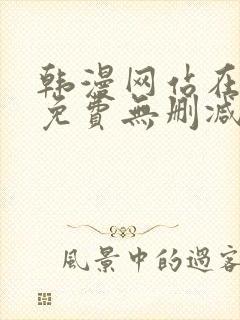 韩漫网站在
免費無刪減
風景中的過客